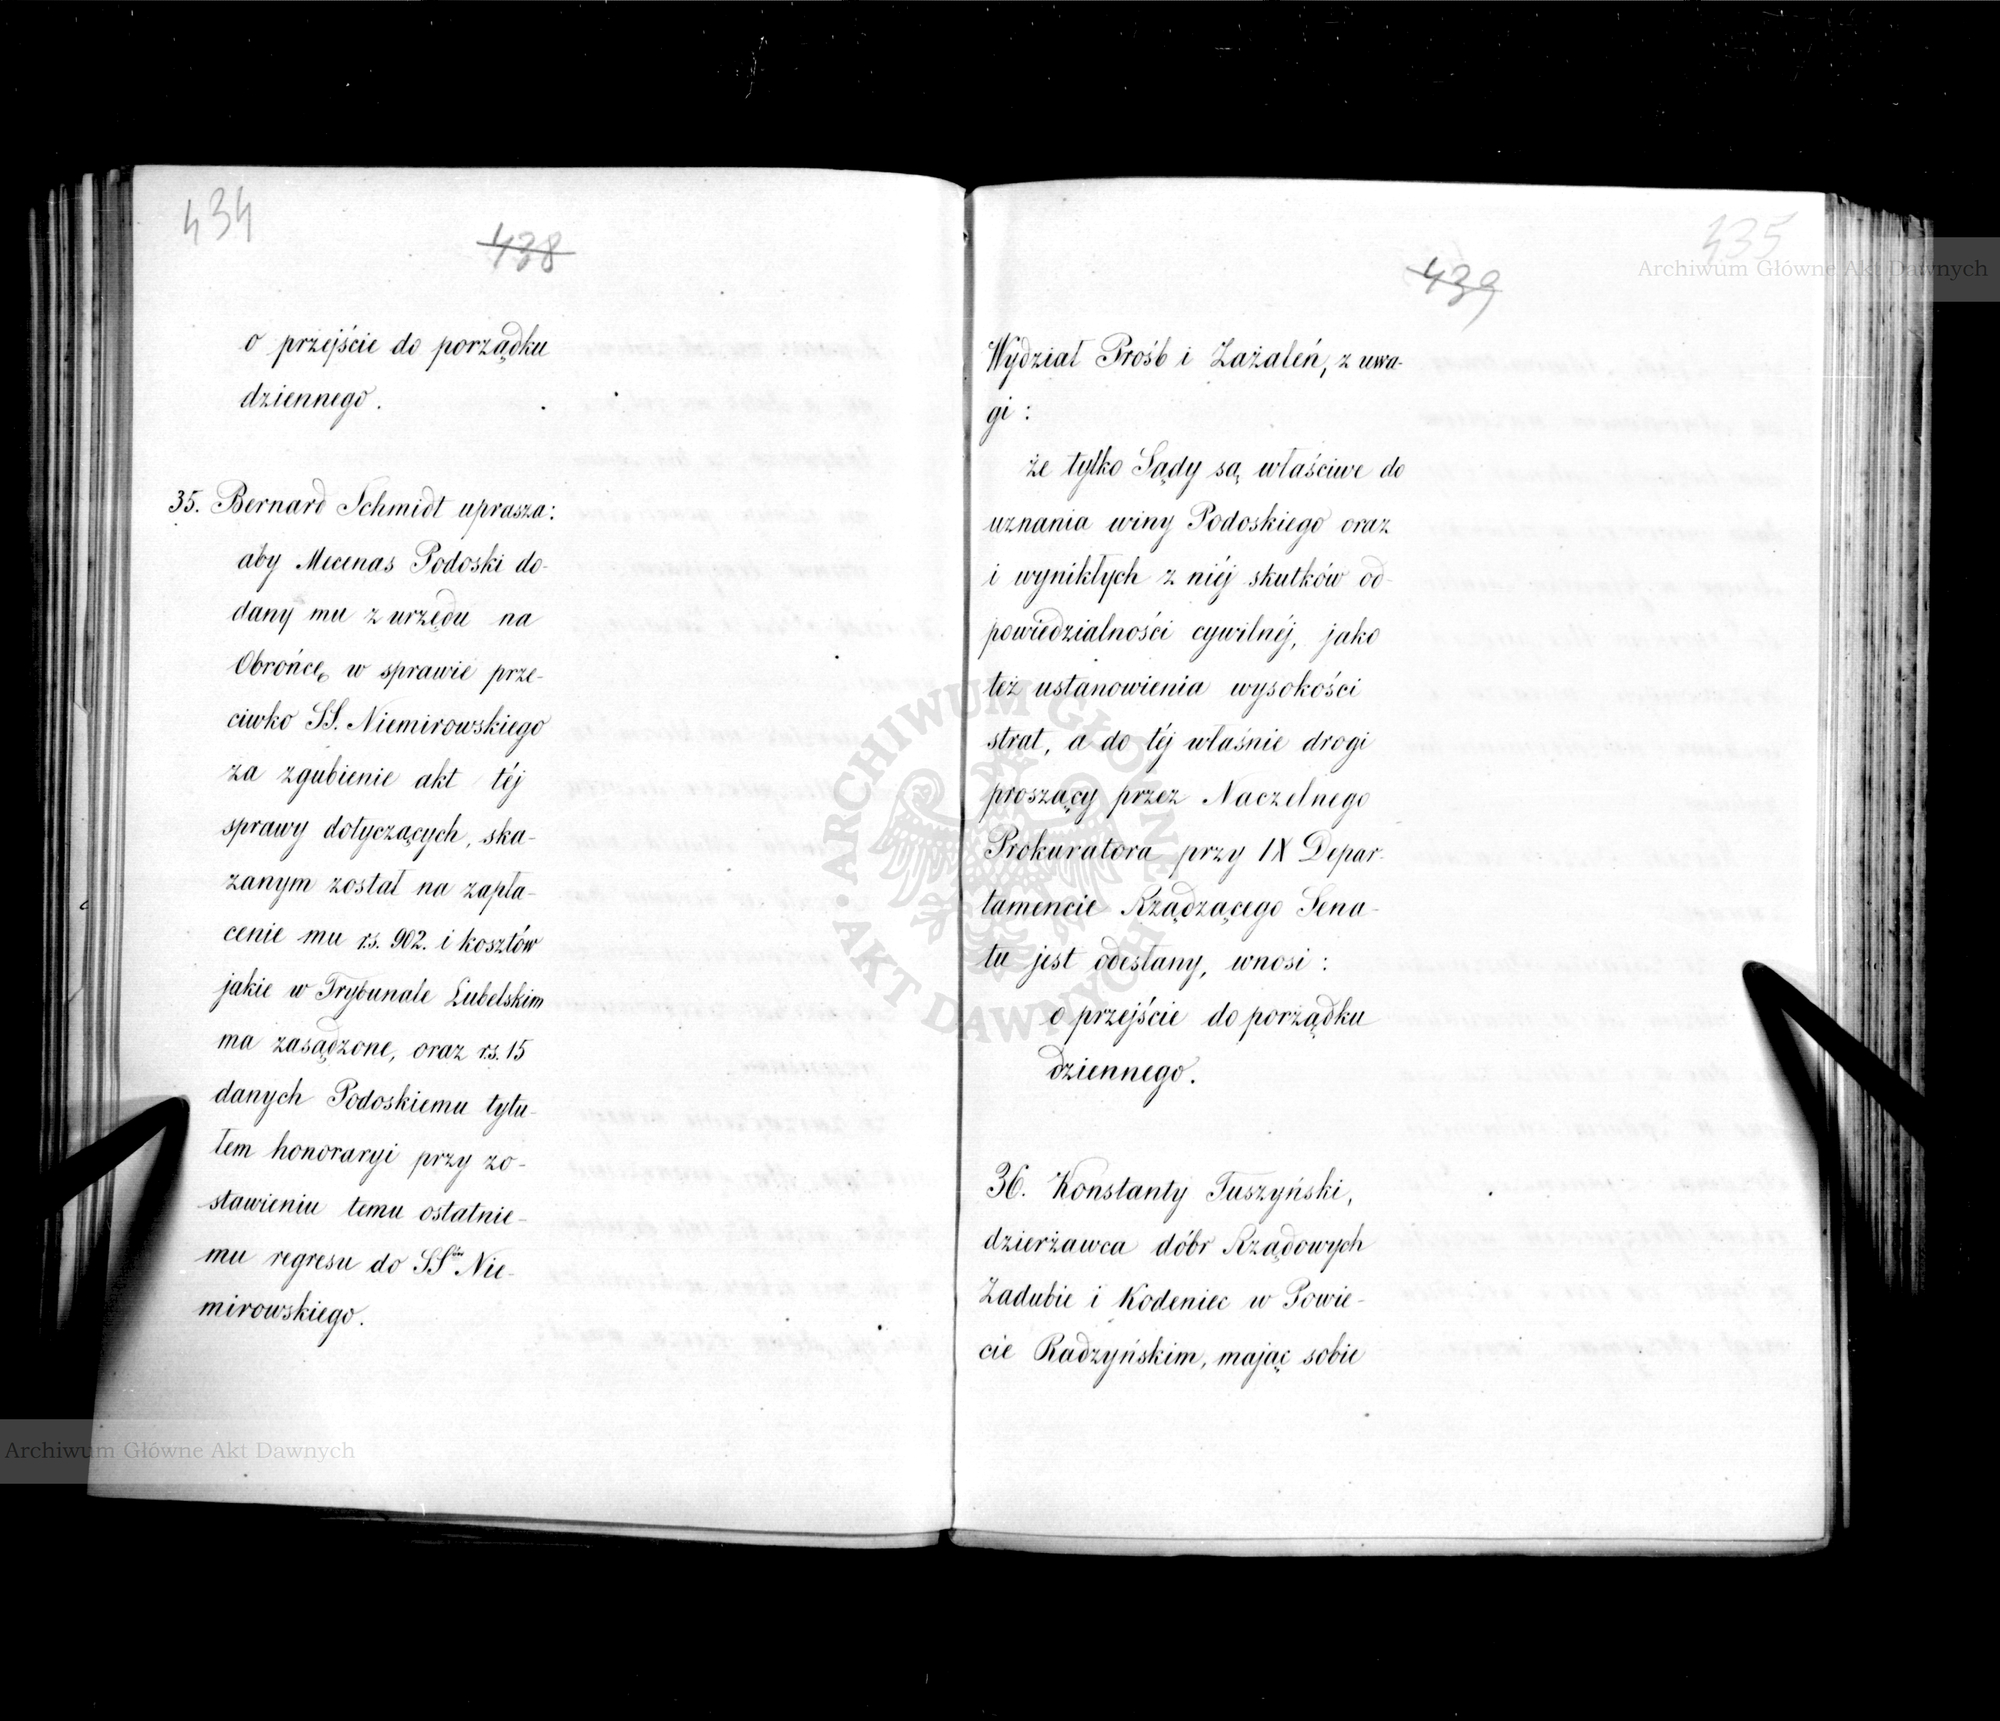 434
438
o przejście do porządku
dziennego.
35. Bernard Schmidt uprasza:
aby Mecenas Podoski do-
dany mu z urzędu na
Obrońcę w sprawie prze-
ciwko SS. Niemirowskiego
za zgubienie akt téj
sprawy dotyczących, ska-
zanym został na zapła-
cenie mu rs. 902. i kosztów
jakie w Trybunale Lubelskim
ma zasądzone, oraz rs. 15
danych Podoskiemu tytu-
łem honoraryi przy zo-
stawieniu temu ostatnie-
mu regresu do SSów Nie-
mirowskiego.
435
439
Wydział Prośb i Zażaleń, z uwa-
gi:
że tylko Sądy są właściwe do
uznania winy Podoskiego oraz
i wynikłych z niéj skutków od-
powiedzialności cywilnéj, jako
też ustanowienia wysokości
strat, a do téj właśnie drogi
proszący przez Naczelnego
Prokuratora przy IX Depar-
tamencie Rządzącego Sena-
tu jest odesłany, wnosi:
o przejście do porządku
dziennego.
36. Konstanty Tuszyński,
dzierżawca dóbr Rządowych
Zadubie i Kodeniec w Powie-
cie Radzyńskim, mając sobie
Archiwum Główne Akt Dawnych
ARCHIWUM GŁÓWNE AKT DAWNYCH
Archiwum Główne Akt Dawnych